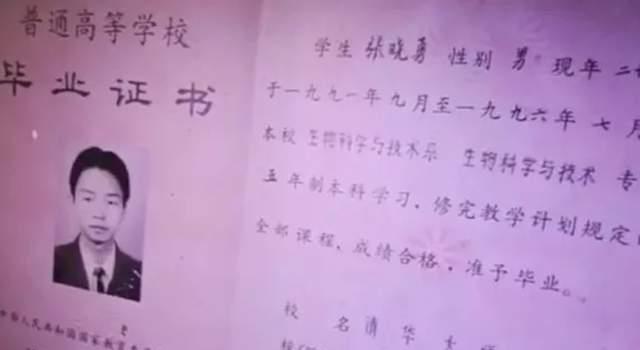 普通高等学校
毕业证书
中华人民共和国国家教育
学生 张晓勇 性别 男 现年 二
于一九九一年九月至一九九六年 七 月
本校 生物科学与技术系 生物科学与技术 专
五年制本科学习，修完教学计划规定
全部课程，成绩合格，准予毕业。
校 名 清 华 大